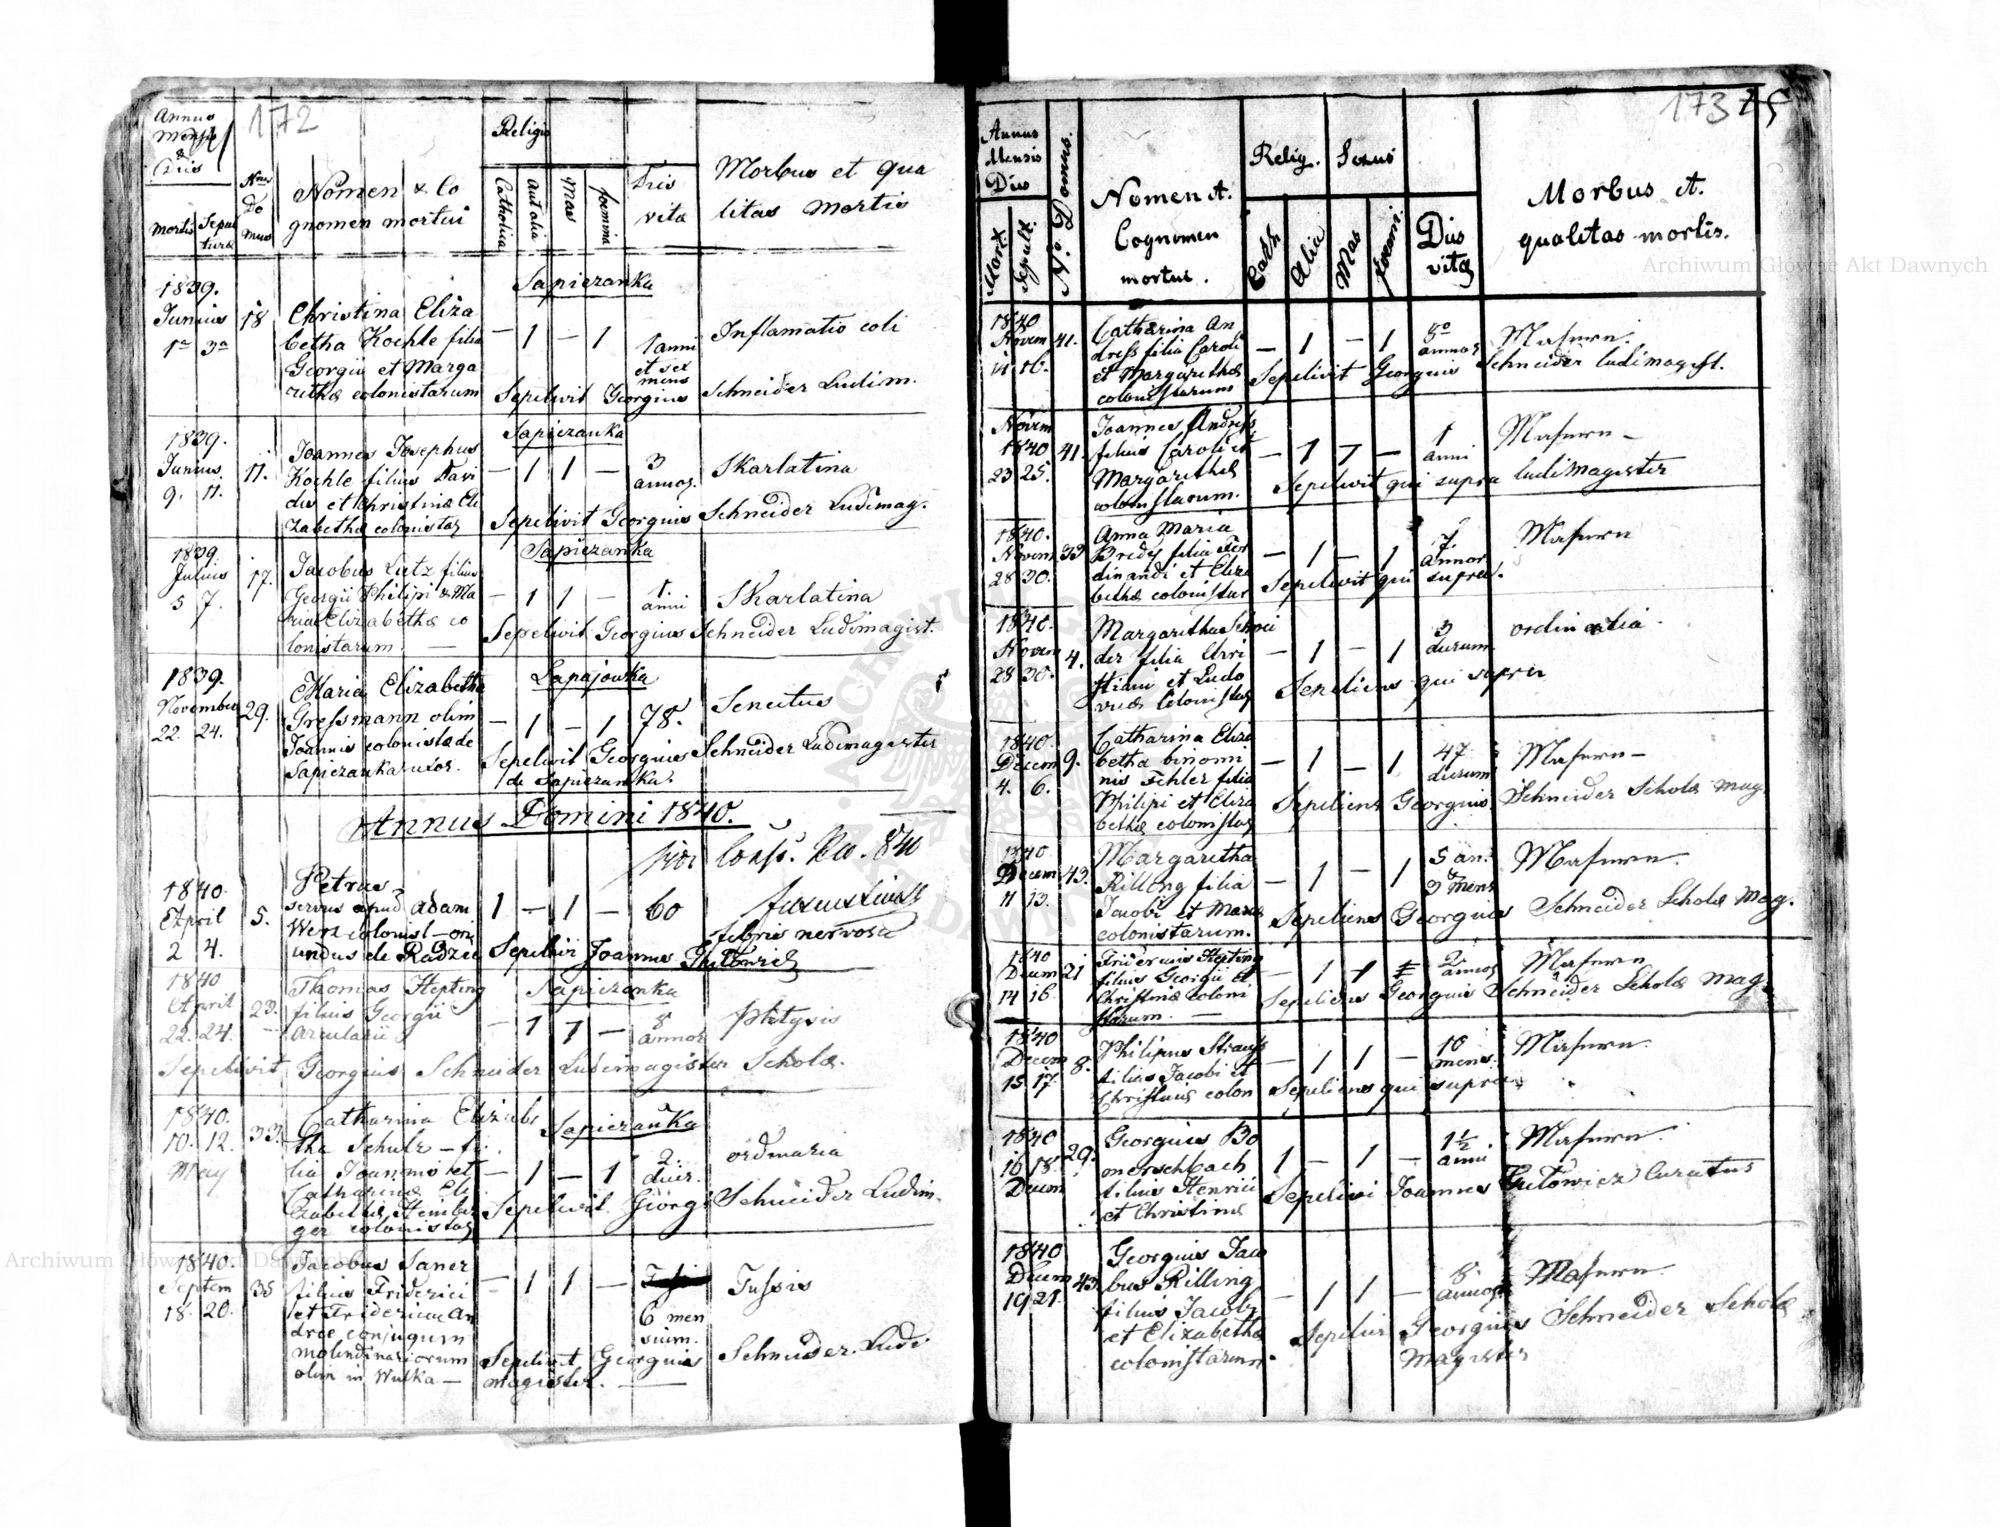 172
Annus
Mensis
&
Dies
Mortis Sepul
turæ
Nrus
Do
mus
Nomen & Co
gnomen mortui
Religio
Catholica
Aut alia
Mas
foemina
Dies
vitæ
Morbus et qua
litas mortis
Sapiezanka
1839.
Junius 18
1a 3a
Christina Eliza
betha Koehle filia
Georgii et Marga
rethæ colonistarum
— 1 — 1
1 anni
et sex
mens
Inflamatio coli
Sepelivit Georgius Schneider Ludim.
Sapiezanka
1839.
Junius 11.
9. 11.
Joannes Josephus
Koehle filius Davi
dis et Christinæ Eli
zabethæ colonistas
— 1 1 —
3
annos
Skarlatina
Sepelivit Georgius Schneider Ludimag.
Sapiezanka
1839
Julius 17.
5 7.
Jacobus Lutz filius
Georgii Philipi & Ma
riae Elizabethæ co
lonistarum. —
— 1 1 —
1
anni
Skarlatina
Sepelivit Georgius Schneider Ludimagist.
Lapajowka
1839.
November 29.
22. 24.
Maria Elizabetha
Gressmann olim
Joannis colonistæ de
Sapiezanka uxor.
— 1 — 1
78.
Senectus
Sepelivit Georgius Schneider Ludimagister
de Sapiezanka.
Annus Domini 1840.
1840.
April 5.
2 4.
Petrus
servus apud Adam
Wen colonist — ori
undus de Radzie
1 — 1 —
60
febris nervosa
Sepelivi Joannes Gutowicz
Sapiezanka
1840
April 23.
22. 24.
Thomas Hepting
filius Georgii
arcularii
— 1 1 —
8
annos
Phtysis
Sepelivit Georgius Schneider Ludimagister Scholæ.
Sapiezanka
1840.
10. 12. 33.
May
Catharina Elizabe
tha Schulz — fi
lia Joannis et
Catharinæ Eli
zabethæ Heinber
ger colonistas
— 1 — 1
2
dier.
ordinaria
Sepelivit Giorgi Schneider Ludim.
1840.
Septem 35
18. 20.
Jacobus Saner
filius Friderici
et Fridericæ An
dree conjugum
molendinariorum
olim in Wulka —
— 1 1 —
6 men
sium.
Tussis
Sepelivit Georgius Schneider Ludi
magister. —
173
Annus
Mensis
Dies
Mort.
Sepult.
No. Domus.
Nomen et.
Cognomen
mortui.
Relig. Sexus
Cath.
Alia
Mas
foemi.
Dies
vitæ
Morbus et.
qualitas mortis.
1840
Novem 41.
14 16.
Catharina An
dress filia Caroli
et Margarethæ
colonistarum
— 1 — 1
8o
annos
Masurn.
Sepelivit Georgius Schneider ludimagist.
Novem
1840 41.
23 25.
Joannes Andress
filius Caroli et
Margarethæ
colonistarum.
— 1 1 —
1
anni
Masurn —
Sepelivit qui supra ludimagister
1840.
Novem 33
28 30.
Anna Maria
Bredy filia Fer
dinandi et Eliza
bethæ colonistas
— 1 — 1
7.
annor
Masurn
Sepelivit qui supra.
1840.
Novem 4.
28 30.
Margaritha Schnei
der filia Chri
stiani et Ludo
vicæ Colonistas
— 1 — 1
3
dierum
ordinatia.
Sepeliens qui supra
1840.
Decem 9.
4. 6.
Catharina Eliza
betha binomi
nis Fehler filia
Philipi et Eliza
bethæ colonistas
— 1 — 1
47
dierum
Masurn —
Sepeliens Georgius Schneider Scholæ mag.
1840
Decem 43.
11 13.
Margaritha
Rilling filia
Jacobi et Mariæ
colonistarum.
— 1 — 1
5 an.
3 mens
Masurn.
Sepeliens Georgius Schneider Scholæ Mag.
1840
Decem 21
14 16
Fridericus Hepting
filius Georgii et
Christinæ coloni
starum. —
— 1 1
2
annos
Masurn
Sepeliens Georgius Schneider Scholæ mag.
1840
Decem 8.
15 17.
Philipus Strauss
filius Jacobi et
Christinæ colon
— 1 1 —
10
mens.
Masurn.
Sepeliens qui supra
1840
16 18. 29.
Decem
Georgius Bo
merschbach
filius Henrici
et Christinæ
1 — 1 —
1½
anni
Masurn.
Sepelivi Joannes Gutowicz Curatus
1840
Decem 43.
19 21.
Georgius Jaco
bus Rilling
filius Jacobi
et Elizabethæ
colonistarum.
— 1 1 —
8
annos
Masurn.
Sepeliens Georgius Schneider Scholæ
Magister
Archiwum Główne Akt Dawnych
Archiwum Główne Akt Dawnych